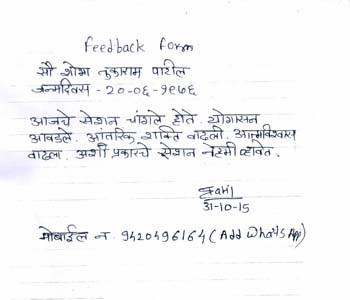 Feedback form
सौ शोभा तुकाराम पाटील
जन्मदिवस - २०-०६-१९७६
आजचे सेशन चांगले होते. योगासन
आवडले. आंतरिक शक्ति वाढली. आत्मविश्वास
वाढला. अशी प्रकारचे सेशन नेहमी व्हावेत.
31-10-15
मोबाईल न. 9420496164 (Add WhatsApp)